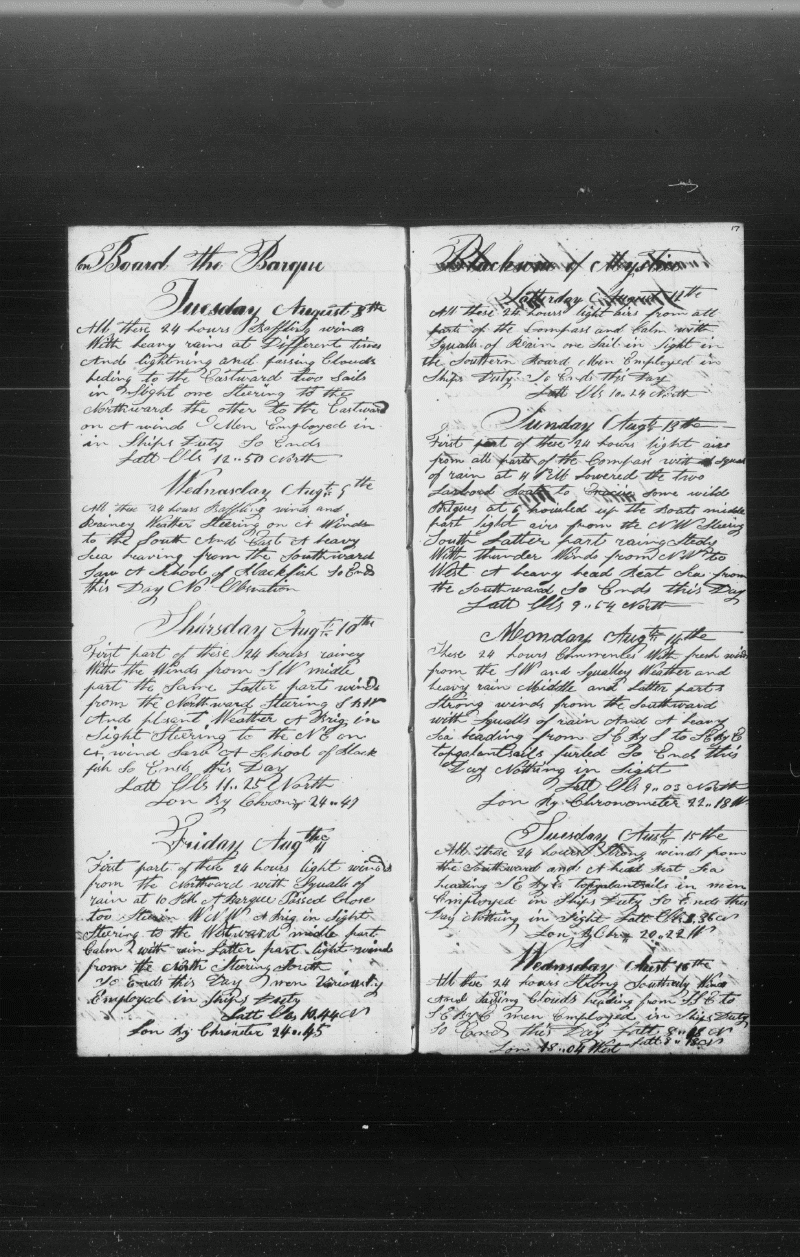 on Board the Barque
Tuesday August 8th
All these 24 hours Baffling winds
With heavy rains at Different times
And lightning and passing Clouds
heding to the Eastward two Sails
in Sight one Steering to the
Northward the other to the Eastward
on A wind Men Employed in
in Ships Duty So Ends
Latt Obs 12..50 North
Wednasday Augt 9the
All thee 24 hours Baffling winds and
Rainey Weather Steering on A Winde
to the South And East A heavy
Sea heaving from the Southward
Saw A School of blackfish So Ends
this Day No Obsvation
Thursday Augt 10the
First part of these 24 hours rainey
With the Winds from SW midle
part the Same Latter part winds
from the Northward Steering
And plsant Weather A Brig in
Sight Steering to the NE on
a wind Saw A School of black
fish So Ends this Day
Latt Obs 11..25 North
Lon By Chrono 24..41
Friday Augthe 11
First part of these 24 hours light winds
from the Northward with Squalls of
rain at 10 A Barque Passed Close
too Steern WNW A Brig in Sight
Steering to the Westward middle part
Calm with rain Latter part light winds
from the North Steering South
So Ends this Day men Variously
Employed in Ships Duty
Latt Obs 10.44 N
Lon By Chronter 24..45
17
of Mystic
Satturday August 12the
All these 24 hours light airs from all
parts of the Compass and Calm with
Squalls of Rain one Sail in Sight in
the Southern Board Men Employed in
Ships Duty So Ends this Day
Latt Obs 10..24 North
Sunday Augt 13the
First part of these 24 hours light airs
from all parts of the Compass with Squals
of rain at 4 PM lowered the two
Larboard Boats to Some wild
at 6 howled up the Boats middle
part light airs from the NW Steering
South Latter part raing Stedy
With thunder Winds from NW to
West A heavy head Beat Sea from
the Southward So Ends this Day
Latt Obs 9..54 North
Monday Augt 14the
These 24 hours Commences With fresh winds
from the SW and Squalley Weather and
heavy rain Middle and Latter parts
Strong winds from the Southward
with Squalls of rain And A heavy
Sea heading from S E by S to SE by E
topgalantsails furled So Ends this
Day Nothing in Sight
Latt Obs 9..03 North
Lon By Chronometer 22..18 W
Tuesday Aust 15the
All these 24 hours Strong winds from
the Southward and A head Beat Sea
heading S E by E topgalantsails in men
Employed in Ships Duty So Ends this
Day Nothing in Sight Latt Obs 8.36 N
Lon By Chro 20..22 W
Wednesday Aust 16the
All thee 24 hours Strong Southerly Wind
And Passing Clouds heading from S E to
S E by E men Employed in Ships Duty
So Ends this Day Latt 8..18 N
Lon 18..04 West Latt 8..18 N